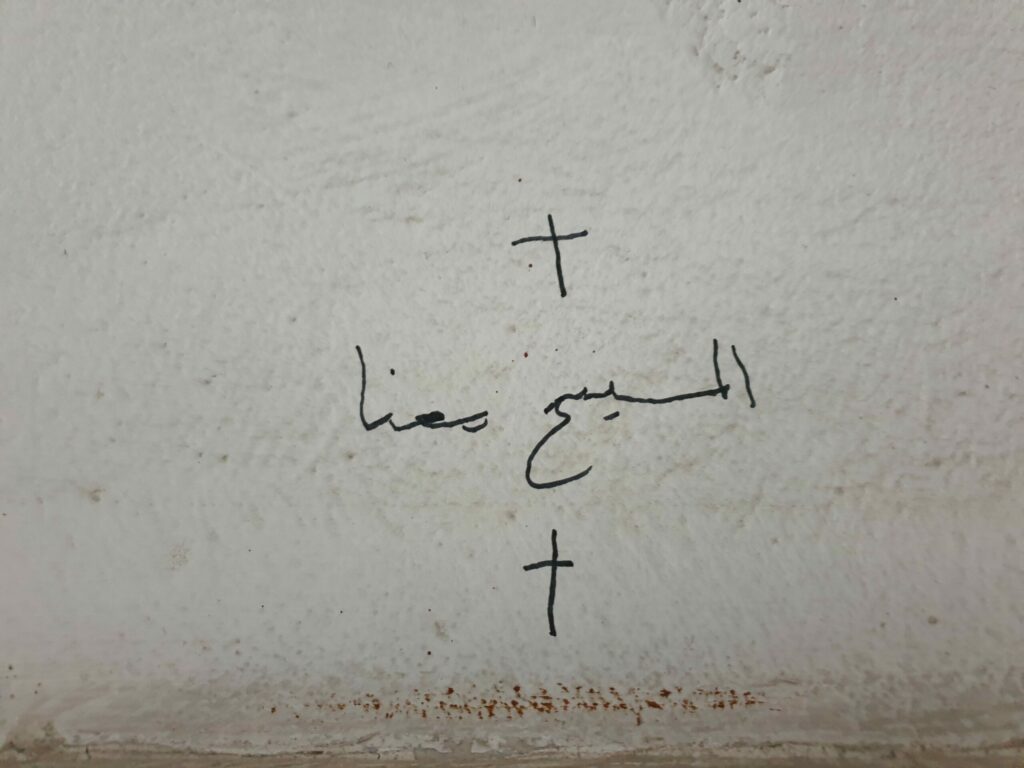 ✝
المسيح معنا
✝